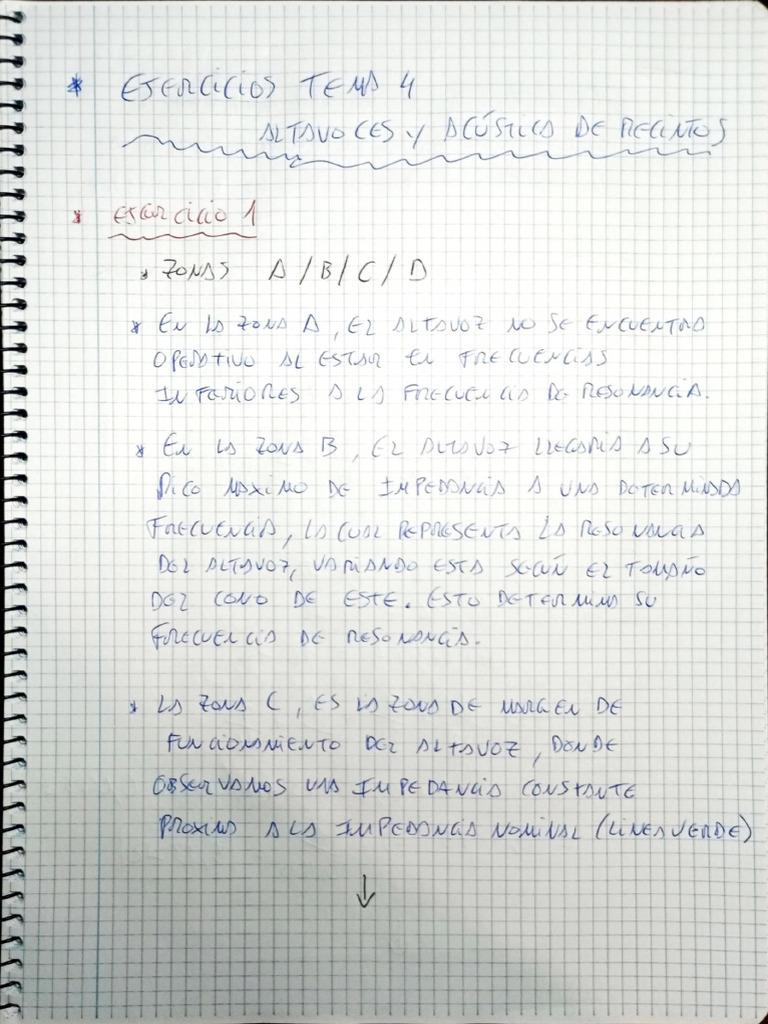 * EJERCICIOS TEMA 4
ALTAVOCES Y ACÚSTICA DE RECINTOS
* EJERCICIO 1
* ZONAS A/B/C/D
* EN LA ZONA A, EL ALTAVOZ NO SE ENCUENTRA
OPERATIVO AL ESTAR EN FRECUENCIAS
INFERIORES A LA FRECUENCIA DE RESONANCIA.
* EN LA ZONA B, EL ALTAVOZ LLEGARÍA A SU
PICO MÁXIMO DE IMPEDANCIA A UNA DETERMINADA
FRECUENCIA, LA CUAL REPRESENTA LA RESONANCIA
DEL ALTAVOZ, VARIANDO ESTA SEGÚN EL TAMAÑO
DEL CONO DE ESTE. ESTO DETERMINA SU
FRECUENCIA DE RESONANCIA.
* LA ZONA C, ES LA ZONA DE MARGEN DE
FUNCIONAMIENTO DEL ALTAVOZ, DONDE
OBSERVAMOS UNA IMPEDANCIA CONSTANTE
PROXIMA A LA IMPEDANCIA NOMINAL (LINEA VERDE)
↓